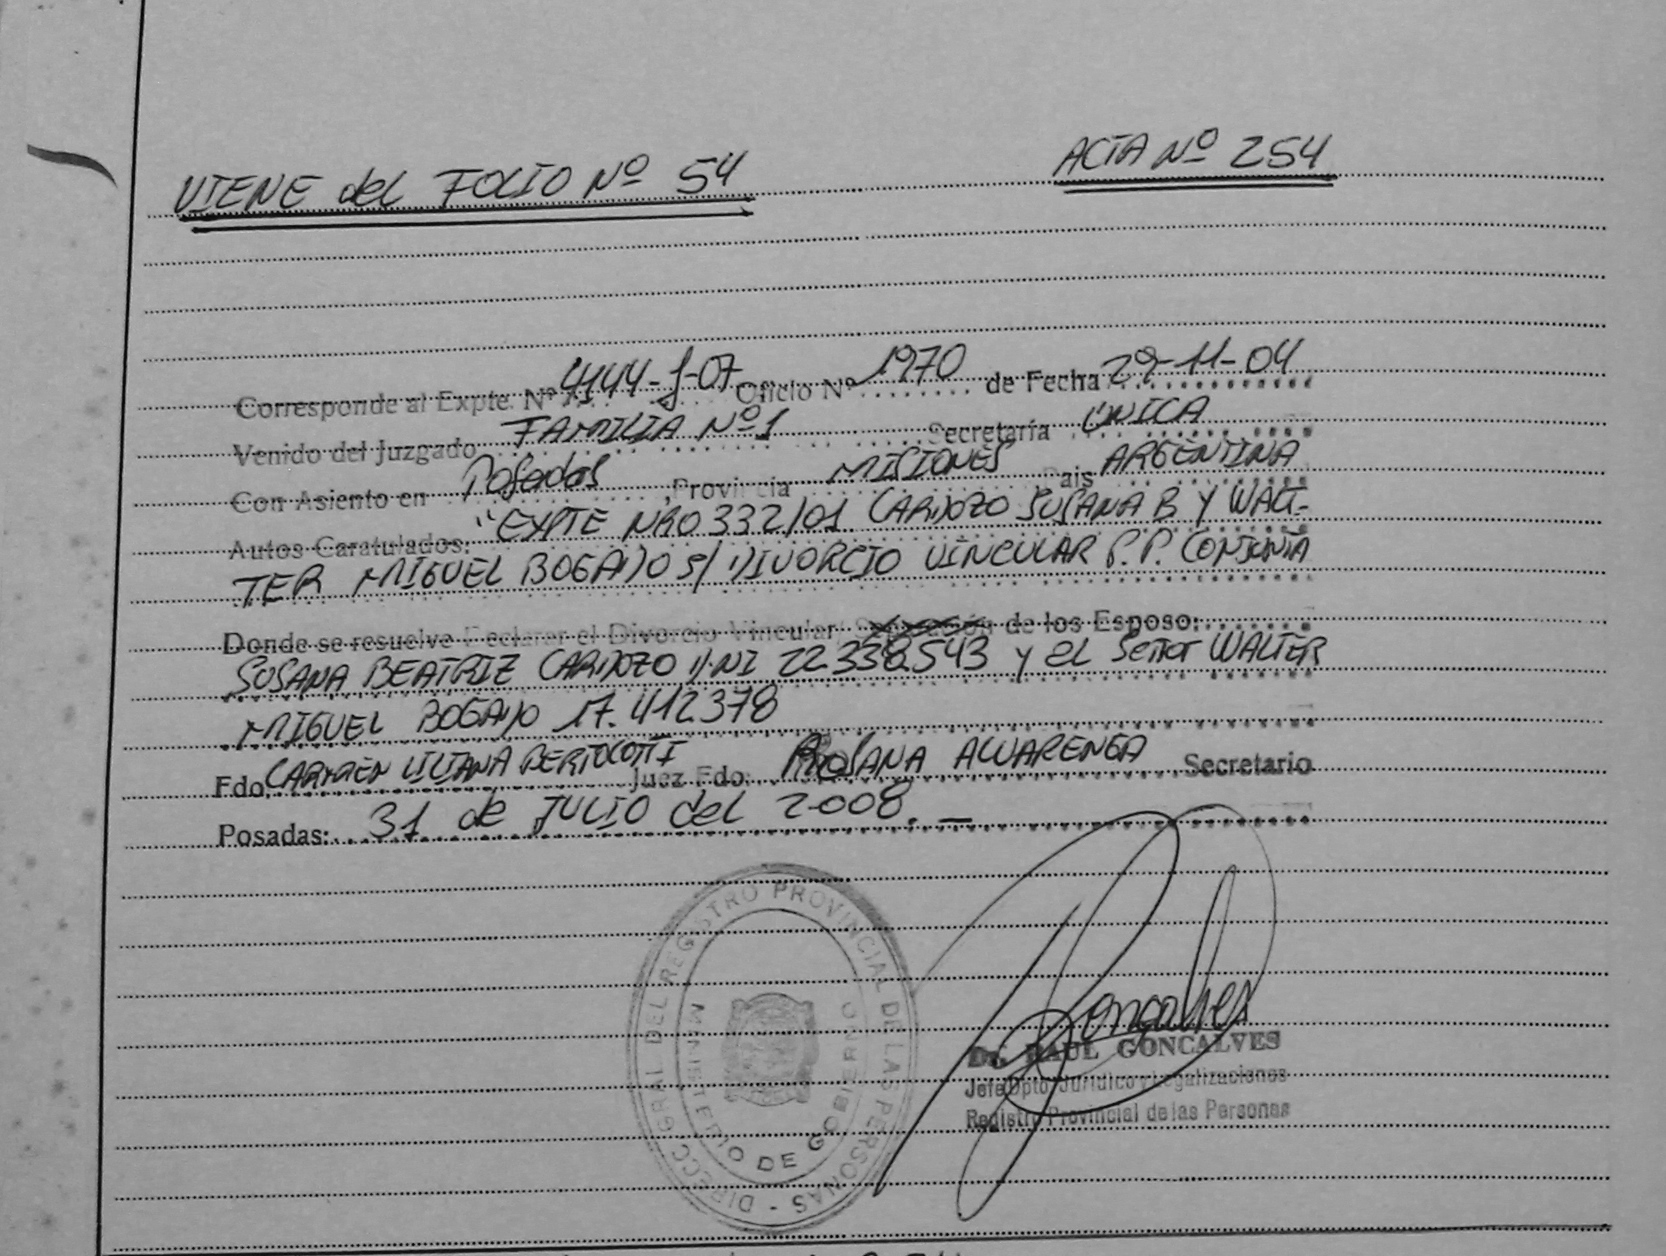 VIENE del FOLIO Nº 54
ACTA Nº 254
Corresponde al Expte. Nº 4144-J-07 Oficio Nº 1970 de Fecha 29-11-04
Venido del Juzgado FAMILIA Nº1 Secretaría ÚNICA
Con Asiento en Posadas, Provincia MISIONES Pais ARGENTINA
Autos Caratulados: "EXPTE NRO 332/01 CARDOZO SUSANA B Y WALT-
TER MIGUEL BOGADO S/ DIVORCIO VINCULAR P.P. CONJUNTA
Donde se resuelve Declarar el Divorcio Vincular/ Separación de los Esposo:
SUSANA BEATRIZ CARDOZO DNI 22.338.543 y el Señor WALTER
MIGUEL BOGADO 17.412378
Fdo CARMEN LILIANA Juez Fdo: ROSANA ALVARENGA Secretario
Posadas: 31 de JULIO del 2008. _
DIRECC. GRAL DEL REGISTRO PROVINCIAL DE LAS PERSONAS -
MINISTERIO DE GOBIERNO
Goncalves
Dr. RAUL GONCALVES
Jefe Dpto. Jurídico y Legalizaciones
Registro Provincial de las Personas